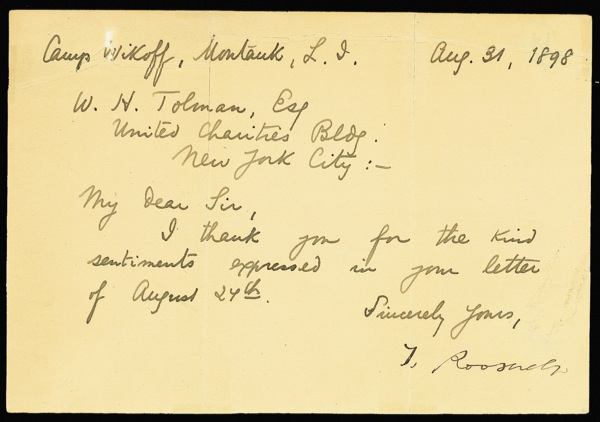 Camp Wikoff, Montauk, L. I. Aug. 31, 1898
W. H. Tolman, Esq
United Charities Bldg.
New York City:—
My dear Sir,
I thank you for the kind
sentiments expressed in your letter
of August 24th.
Sincerely Yours,
T. Roosevelt